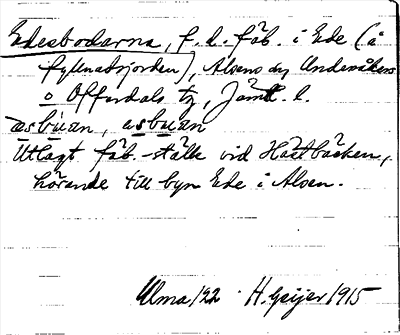 Edesbodarna, f. d. fäb. i Ede (å
fyllnadsjorden), Alsens sn Undersåkers
o Offerdals tg, Jämtl. l.
æsbúan, æsbuan
Utlagt fäb.-ställe vid Hästbäcken,
hörande till byn Ede i Alsen.
Ulma 122 · H. Geijer 1915